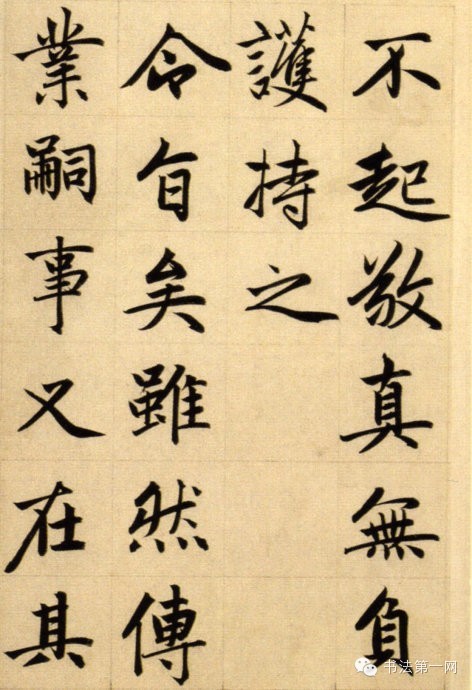 不起敬真無負
護持之
令旨矣雖然傳
業嗣事又在其
书法第一网